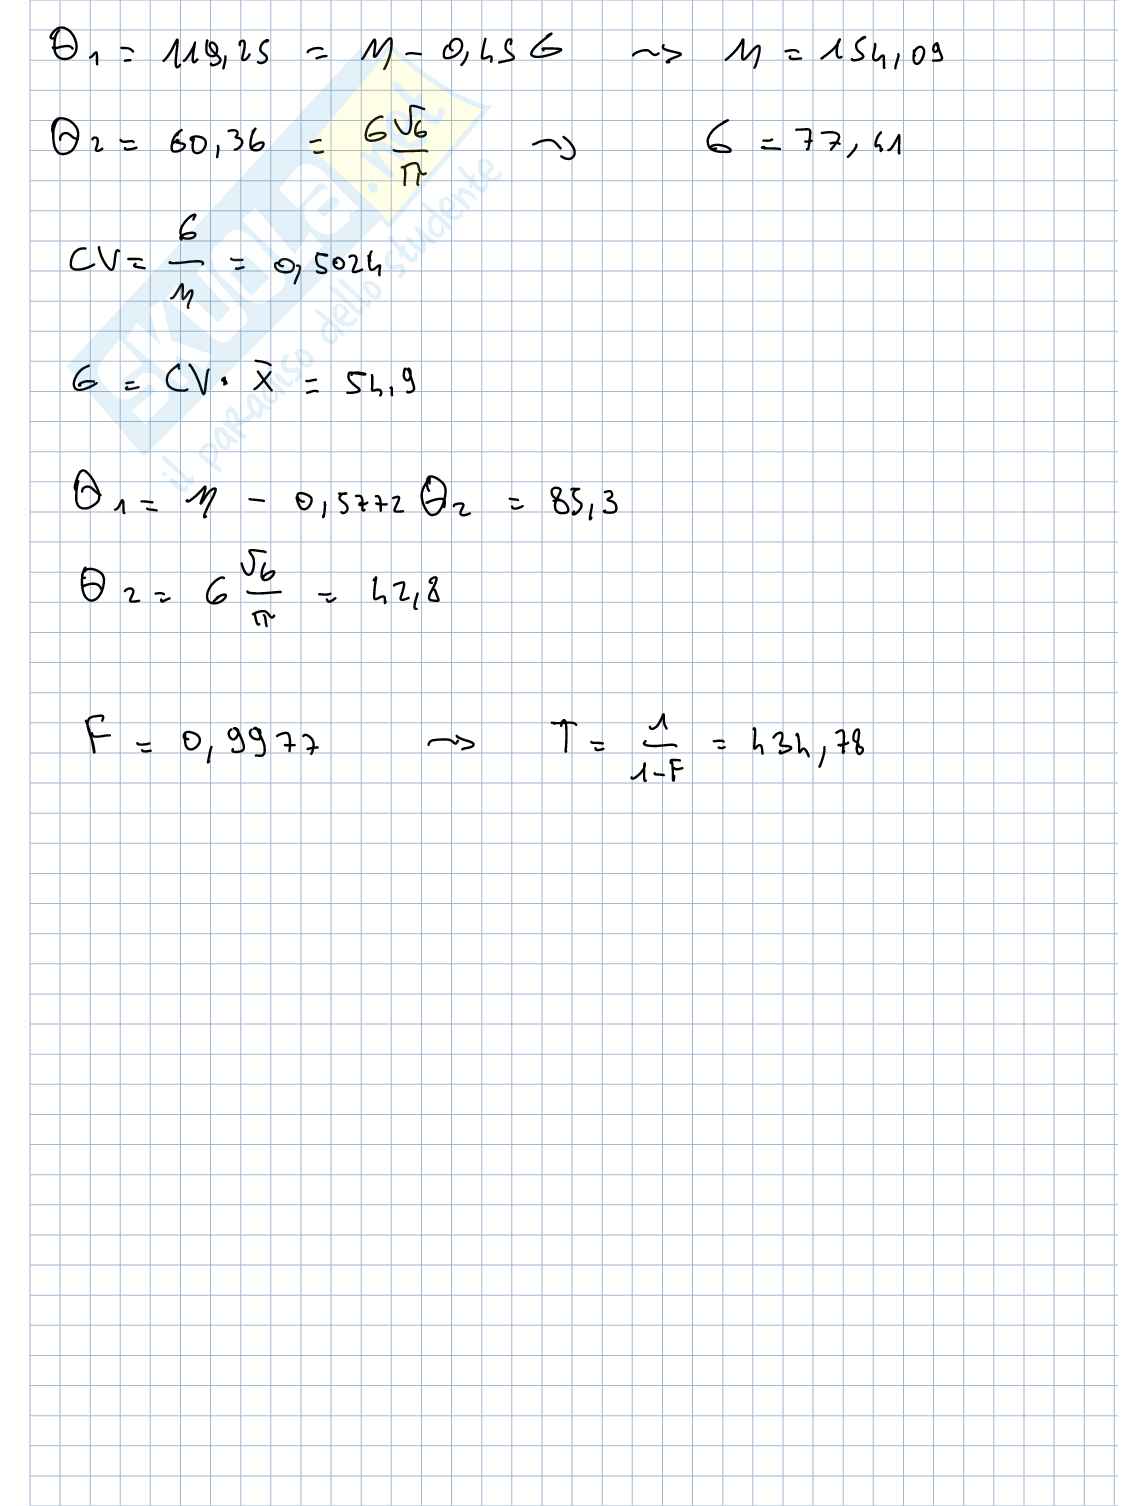 θ₁ = 119,25 = μ - 0,45 σ ⇝ μ = 154,09
θ₂ = 60,36 = σ√6/π ⇝ σ = 77,41
CV = σ/μ = 0,5024
σ = CV · x̄ = 54,9
θ₁ = μ - 0,5772 θ₂ = 85,3
θ₂ = σ √6/π = 42,8
F = 0,9977 ⇝ T = 1/(1-F) = 434,78
SKUOLA.net
il paradiso dello studente